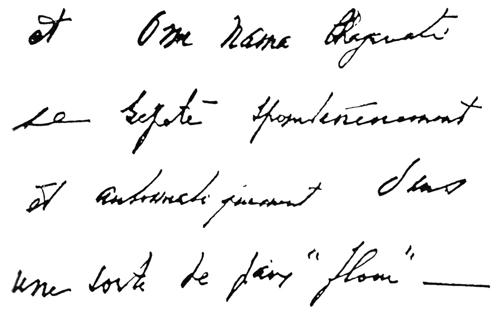 et Om Nama Bhagavati
se répète spontanément
et automatiquement dans
une sorte de paix "flou" —